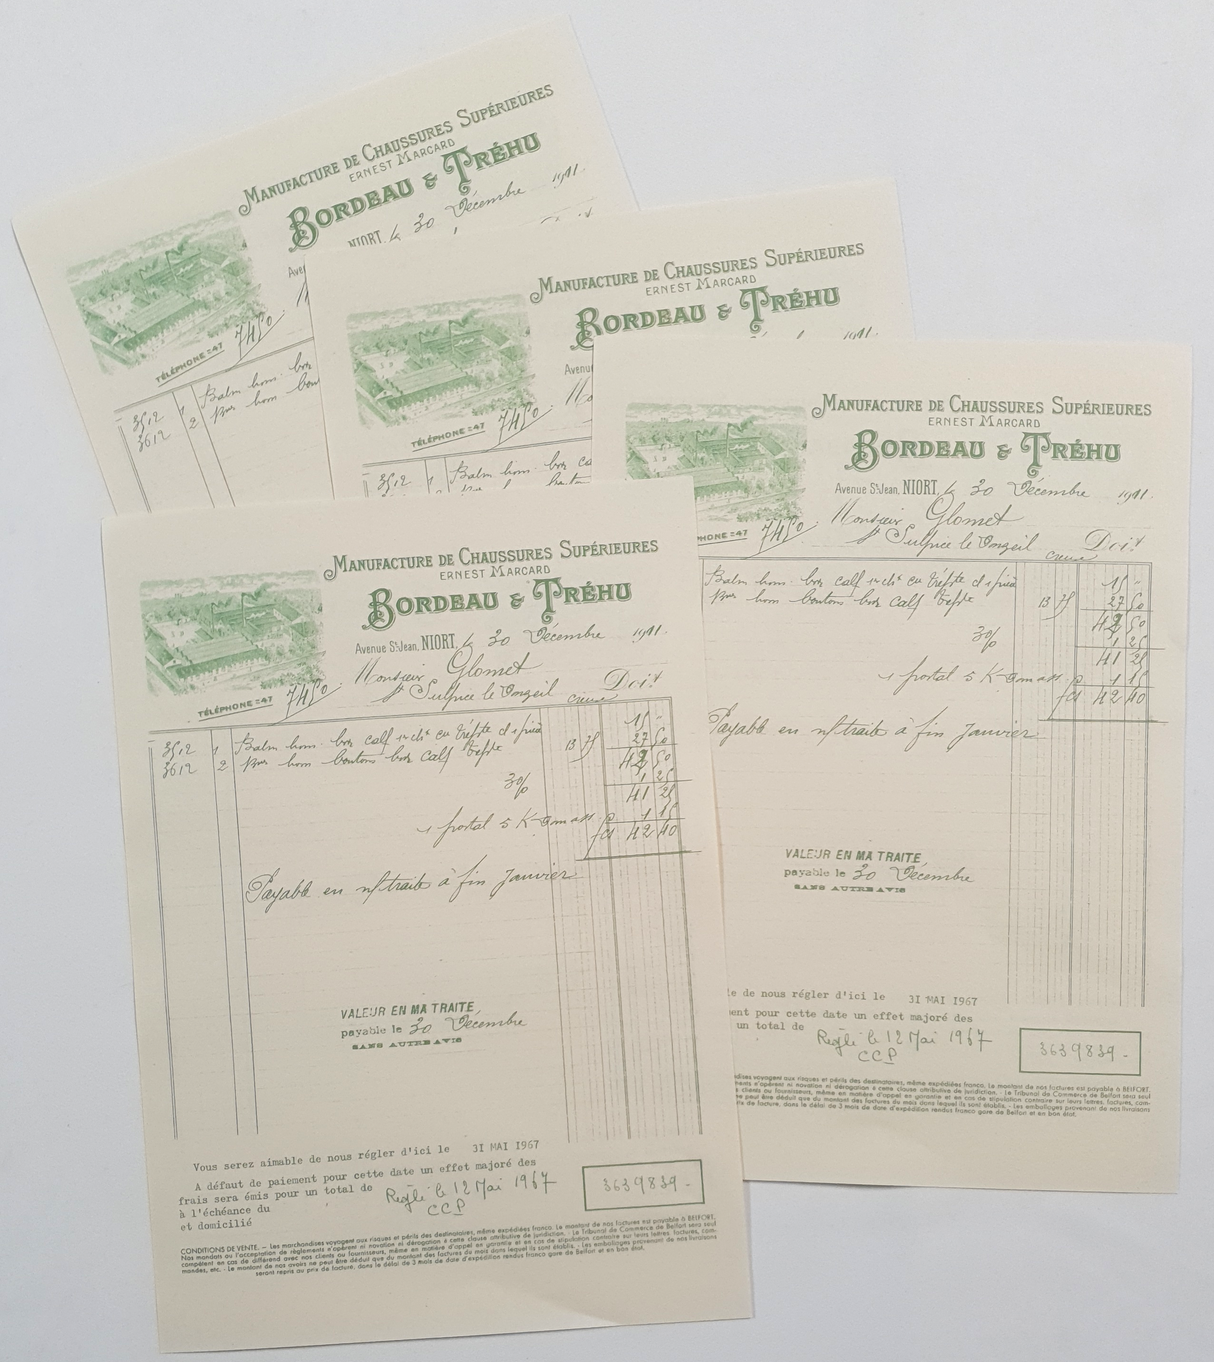 MANUFACTURE DE CHAUSSURES SUPÉRIEURES
ERNEST MARCARD
BORDEAU & TRÉHU
NIORT, le 30 Décembre 1911.
TÉLÉPHONE = 47
7450
3512 1 Balm hom. box
3612 2 hom
MANUFACTURE DE CHAUSSURES SUPÉRIEURES
ERNEST MARCARD
BORDEAU & TRÉHU
1911.
TÉLÉPHONE = 47
7450
3512 1 Balm hom. box
MANUFACTURE DE CHAUSSURES SUPÉRIEURES
ERNEST MARCARD
BORDEAU & TRÉHU
Avenue St Jean, NIORT, le 30 Décembre 1911.
Monsieur Glomet
St Sulpice le creuse Doit
7450
Balm hom. box calf 15
hom boutons box calf 13 75 27 50
42 50
3% 1 25
41 25
1 postal 5 K 1 15
fcs 42 40
Payable en n/traite à fin Janvier
VALEUR EN MA TRAITE,
payable le 30 Décembre
SANS AUTRE AVIS
de nous régler d'ici le 3I MAI 1967
pour cette date un effet majoré des
un total de Réglé le 12 Mai 1967
CCP
3639839-
MANUFACTURE DE CHAUSSURES SUPÉRIEURES
ERNEST MARCARD
BORDEAU & TRÉHU
Avenue St Jean, NIORT, le 30 Décembre 1911.
Monsieur Glomet
St Sulpice le creuse Doit
TÉLÉPHONE = 47 7450
3512 1 Balm hom. box calf 15
3612 2 hom boutons box calf 13 75 27 50
42 50
3% 1 25
41 25
1 postal 5 K 1 15
fcs 42 40
Payable en n/traite à fin Janvier
VALEUR EN MA TRAITE,
payable le 30 Décembre
SANS AUTRE AVIS
Vous serez aimable de nous régler d'ici le 3I MAI 1967
A défaut de paiement pour cette date un effet majoré des
frais sera émis pour un total de Réglé le 12 Mai 1967
à l'échéance du CCP
et domicilié
3639839-
CONDITIONS DE VENTE. — Les marchandises voyagent aux risques et périls des destinataires, même expédiées franco. Le montant de nos factures est payable à BELFORT.
Nos mandats ou l'acceptation de règlements n'opèrent ni novation ni dérogation à cette clause attributive de juridiction. - Le Tribunal de Commerce de Belfort sera seul
compétent en cas de différend avec nos clients ou fournisseurs, même en matière d'appel en garantie et en cas de stipulation contraire sur leurs lettres, factures, com-
mandes, etc. - Le montant de nos avoirs ne peut être déduit que du montant des factures du mois dans lequel ils sont établis. - Les emballages provenant de nos livraisons
seront repris au prix de facture, dans le délai de 3 mois de date d'expédition rendus franco gare de Belfort et en bon état.